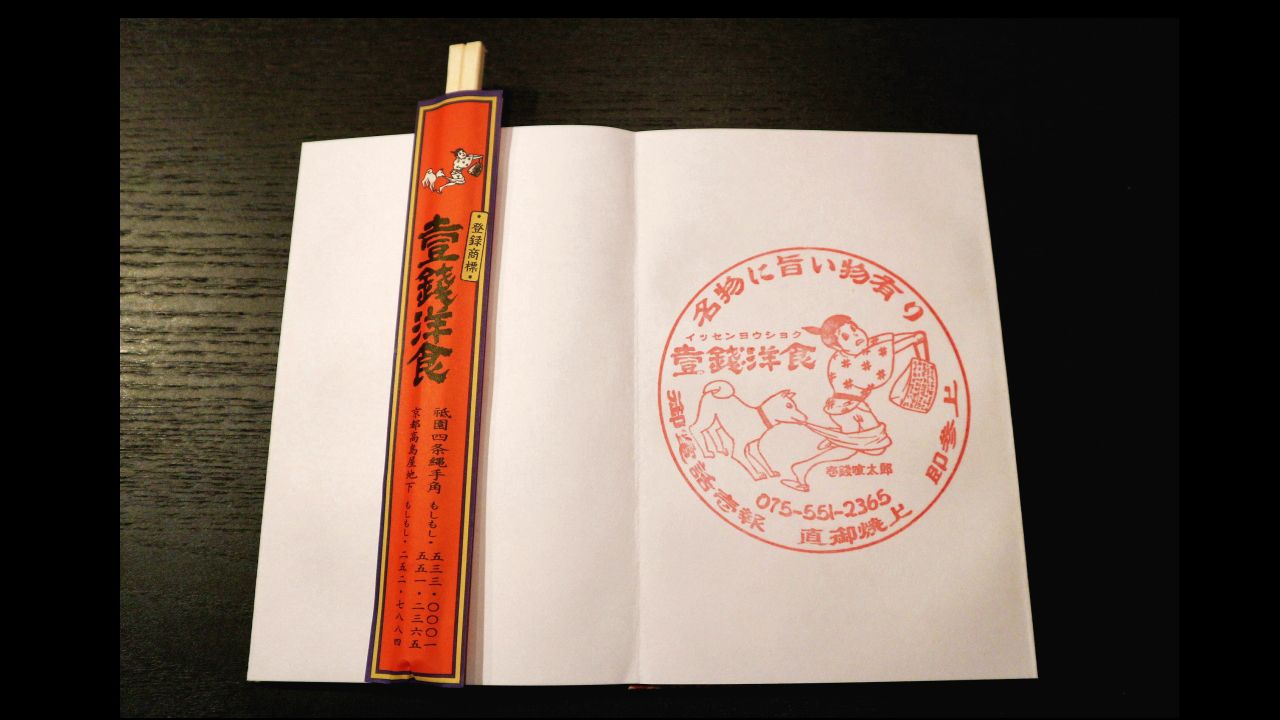 登録商標
壹錢洋食
祗園四条縄手角 もしもし・五三三・〇〇〇一
五五一・二三六五
京都高島屋地下 もしもし・二五二・七八八四
名物に旨い物有り
イッセンヨウショク
壹錢洋食
壱錢喰太郎
御電話壱報
075-551-2365
直御焼上
即参上